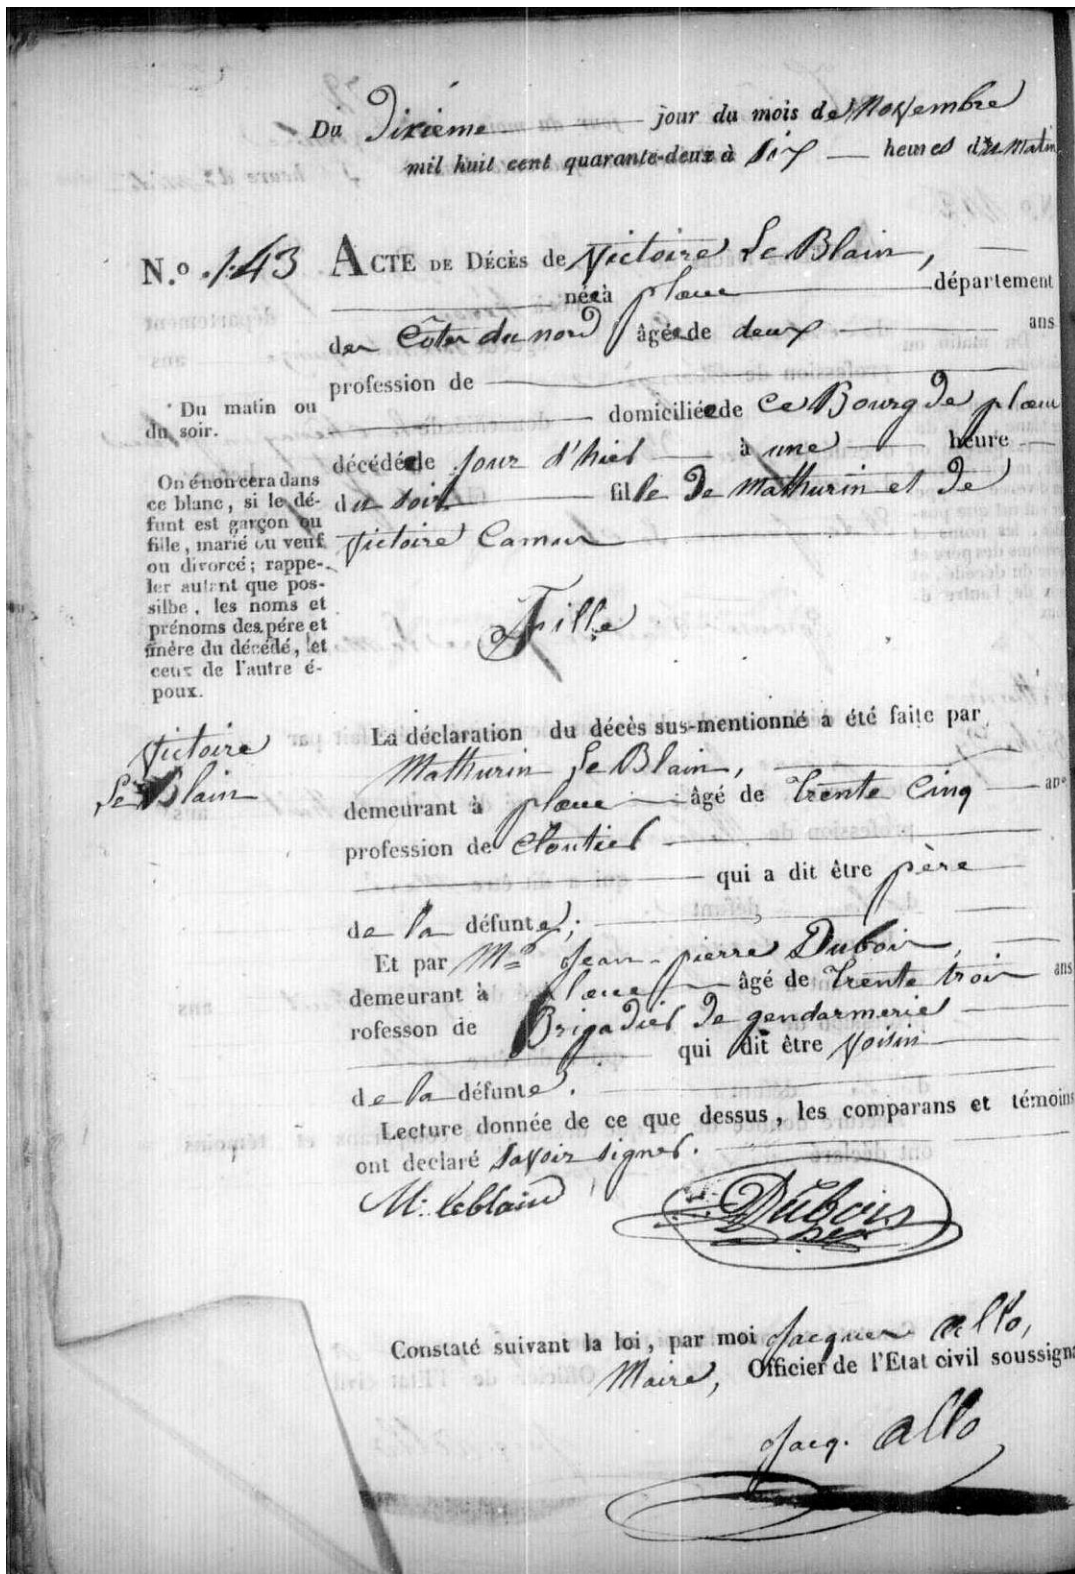 Du Dixième jour du mois de Novembre
mil huit cent quarante-deux à six heures du Matin
N.º 143
ACTE DE DÉCÈS de Victoire Le Blain,
née à plœuc département
des Côtes du nord âgée de deux ans
profession de
domiciliée de ce Bourg de plœuc
décédée le jour d'hier à une heure
du soir fille de Mathurin et de
Victoire Camus
Fille
Du matin ou
du soir.
On énoncera dans
ce blanc, si le dé-
funt est garçon ou
fille, marié ou veuf
ou divorcé; rappe-
ler autant que pos-
silbe, les noms et
prénoms des pére et
mère du décédé, et
ceux de l'autre é-
poux.
Victoire
Le Blain
La déclaration du décès sus-mentionné a été faite par
Mathurin Le Blain,
demeurant à plœuc âgé de trente Cinq ans
profession de Cloutier
qui a dit être père
de la défunte;
Et par Mr Jean-pierre Dubois,
demeurant à plœuc âgé de trente trois ans
rofesson de Brigadier de gendarmerie
qui dit être voisin
de la défunte.
Lecture donnée de ce que dessus, les comparans et témoins
ont declaré savoir signer.
M. leblain
Dubois
Constaté suivant la loi, par moi Jacques allo,
Maire, Officier de l'Etat civil soussigné
Jacq. allo